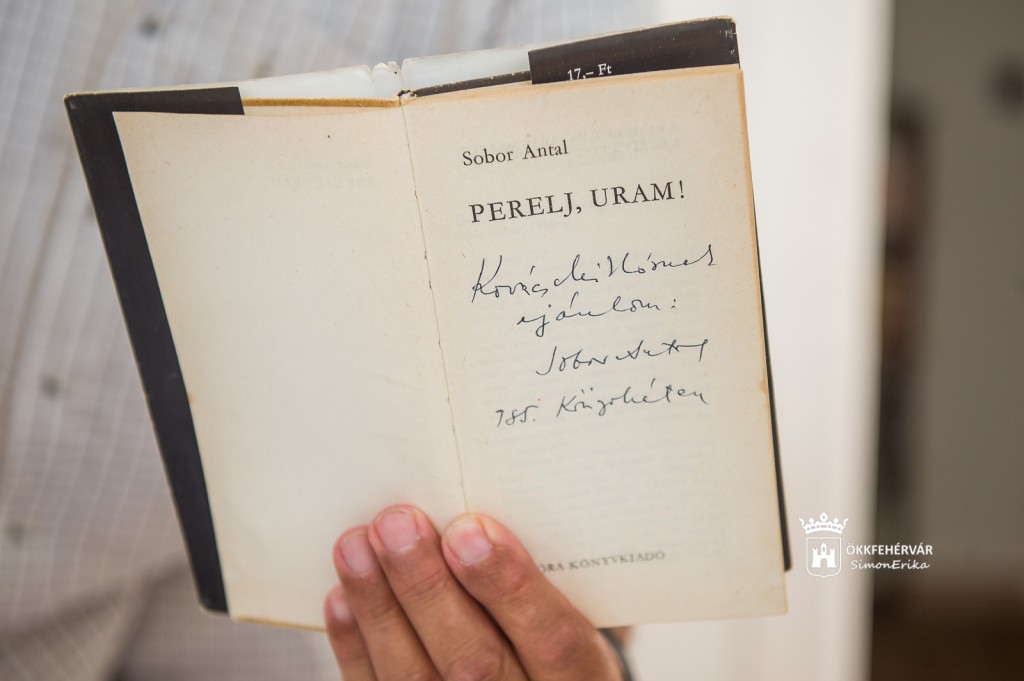 17,– Ft
Sobor Antal
PERELJ, URAM!
Kovács Miklósnak
ajánlom:
Sobor Antal
985. Könyvhéten
ÓRA KÖNYVKIADÓ
ÖKKFEHÉRVÁR
SimonErika